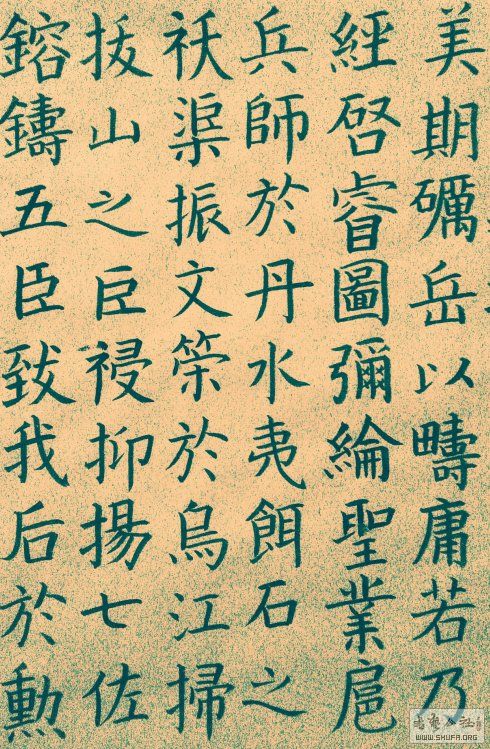 美期礪岳以疇庸若乃
經啓睿圖彌綸聖業扈
兵師於丹水夷餌石之
祅渠振文策於烏江掃
拔山之巨祲抑揚七佐
鎔鑄五臣致我后於勳
WWW.SHUFA.ORG